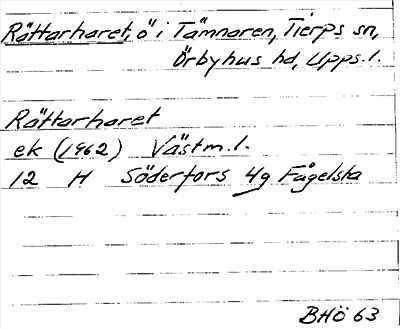 Rättarharet, ö i Tämnaren, Tierps sn,
Örbyhus hd, Upps.l.
Rättarharet
ek (1962) Västm.l.
12 H Söderfors 4g Fågelsta
BHÖ 63